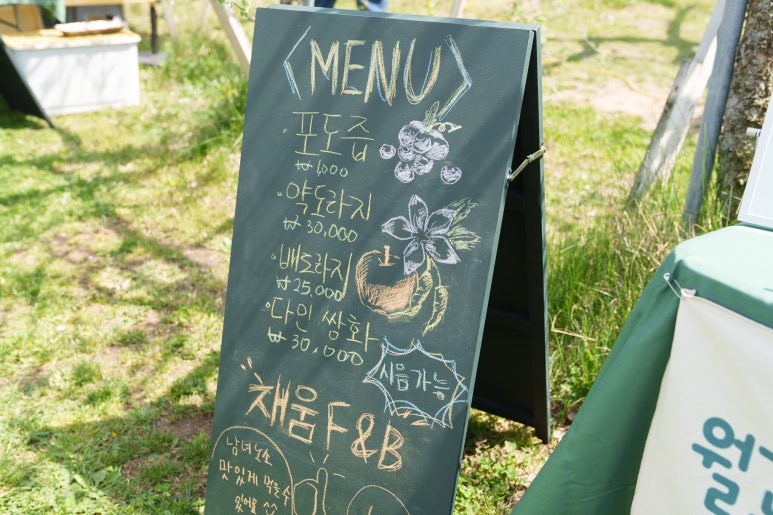 <MENU>
· 포도즙
₩ 1,000
· 약도라지
₩ 30,000
· 배도라지
₩ 25,000
· 다인 쌍화
₩ 30,000
시음가능
채움 F&B
남녀노소
맛있게 먹을수
있어요 ^^